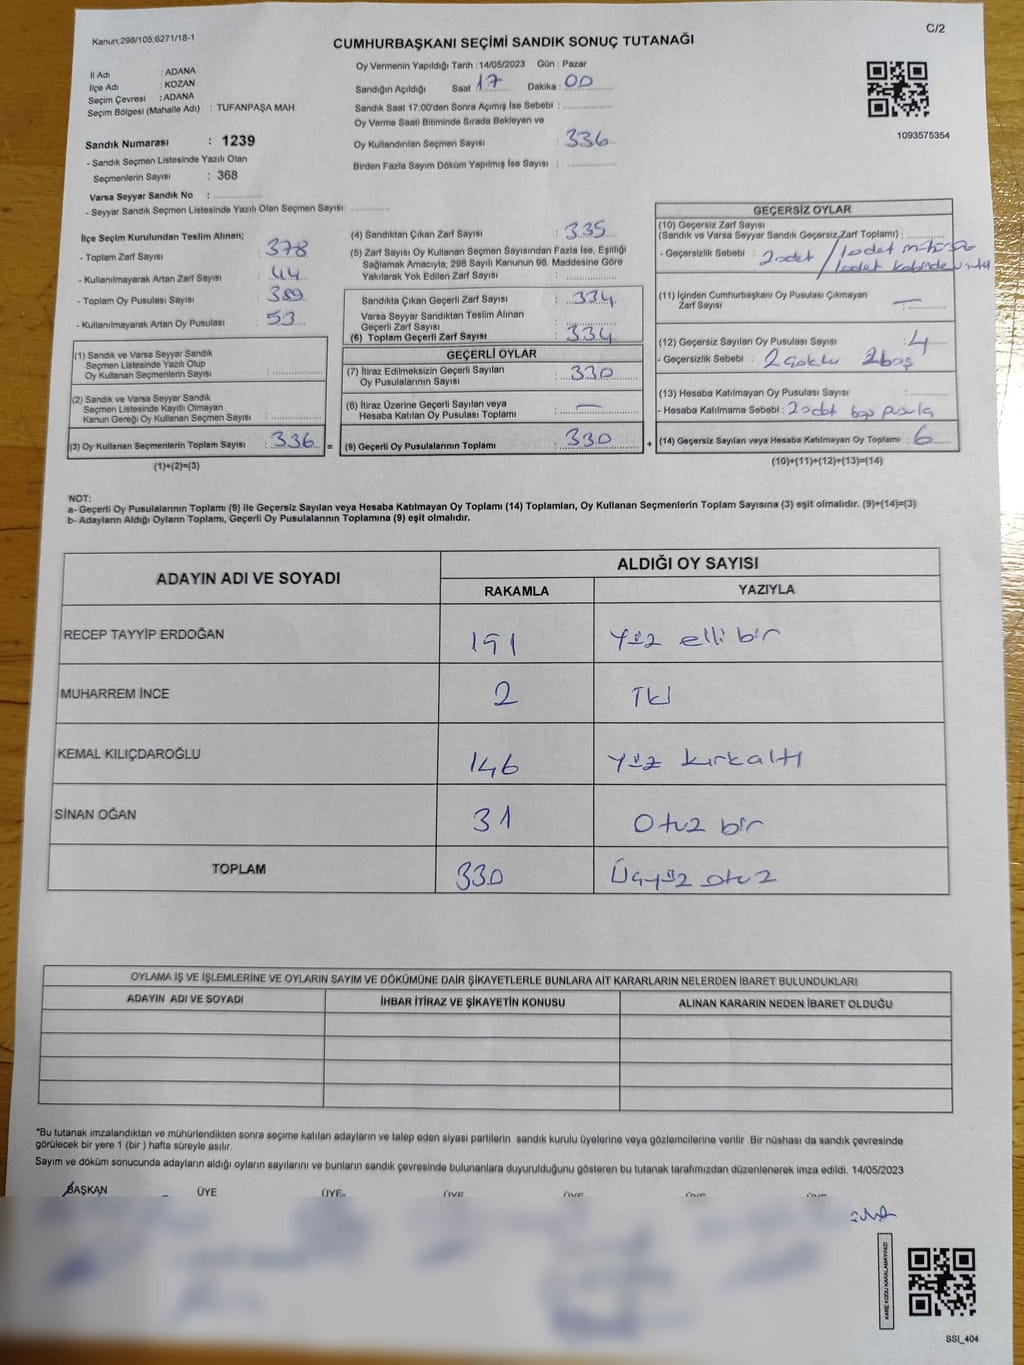 Kanun:298/105;6271/18-1
C/2
CUMHURBAŞKANI SEÇİMİ SANDIK SONUÇ TUTANAĞI
İl Adı : ADANA
İlçe Adı : KOZAN
Seçim Çevresi : ADANA
Seçim Bölgesi (Mahalle Adı) : TUFANPAŞA MAH.
Sandık Numarası : 1239
- Sandık Seçmen Listesinde Yazılı Olan
Seçmenlerin Sayısı : 368
Varsa Seyyar Sandık No : ..............
- Seyyar Sandık Seçmen Listesinde Yazılı Olan Seçmen Sayısı: ............
Oy Vermenin Yapıldığı Tarih : 14/05/2023 Gün : Pazar
Sandığın Açıldığı Saat 17 Dakika : 00
Sandık Saat 17:00'den Sonra Açımış İse Sebebi : ..............
Oy Verme Saati Bitiminde Sırada Bekleyen ve
Oy Kullandırılan Seçmen Sayısı : 336
Birden Fazla Sayım Döküm Yapılmış İse Sayısı : ..............
1093575354
İlçe Seçim Kurulundan Teslim Alınan;
- Toplam Zarf Sayısı : 378
- Kullanılmayarak Artan Zarf Sayısı : 44
- Toplam Oy Pusulası Sayısı : 389
- Kullanılmayarak Artan Oy Pusulası : 53
(1) Sandık ve Varsa Seyyar Sandık
Seçmen Listesinde Yazılı Olup
Oy Kullanan Seçmenlerin Sayısı : ..............
(2) Sandık ve Varsa Seyyar Sandık
Seçmen Listesinde Kayıtlı Olmayan
Kanun Gereği Oy Kullanan Seçmen Sayısı : ..............
(3) Oy Kullanan Seçmenlerin Toplam Sayısı : 336 =
(1)+(2)=(3)
(4) Sandıktan Çıkan Zarf Sayısı : 335
(5) Zarf Sayısı Oy Kullanan Seçmen Sayısından Fazla İse, Eşitliği
Sağlamak Amacıyla; 298 Sayılı Kanunun 98. Maddesine Göre
Yakılarak Yok Edilen Zarf Sayısı : ..............
Sandıkta Çıkan Geçerli Zarf Sayısı : 334
Varsa Seyyar Sandıktan Teslim Alınan
Geçerli Zarf Sayısı : ..............
(6) Toplam Geçerli Zarf Sayısı : 334
GEÇERLİ OYLAR
(7) İtiraz Edilmeksizin Geçerli Sayılan
Oy Pusulalarının Sayısı : 330
(8) İtiraz Üzerine Geçerli Sayılan veya
Hesaba Katılan Oy Pusulası Toplamı : —
(9) Geçerli Oy Pusulalarının Toplamı : 330 +
GEÇERSİZ OYLAR
(10) Geçersiz Zarf Sayısı
(Sandık ve Varsa Seyyar Sandık Geçersiz Zarf Toplamı) : ..............
- Geçersizlik Sebebi : 2 adet / 1 adet
1 adet
(11) İçinden Cumhurbaşkanı Oy Pusulası Çıkmayan
Zarf Sayısı : —
(12) Geçersiz Sayılan Oy Pusulası Sayısı : 4
- Geçersizlik Sebebi : 2 çoklu 2 boş
(13) Hesaba Katılmayan Oy Pusulası Sayısı : ..............
- Hesaba Katılmama Sebebi : 2 adet boş pusula
(14) Geçersiz Sayılan veya Hesaba Katılmayan Oy Toplamı : 6
(10)+(11)+(12)+(13)=(14)
NOT:
a- Geçerli Oy Pusulalarının Toplamı (9) ile Geçersiz Sayılan veya Hesaba Katılmayan Oy Toplamı (14) Toplamları, Oy Kullanan Seçmenlerin Toplam Sayısına (3) eşit olmalıdır. (9)+(14)=(3)
b- Adayların Aldığı Oyların Toplamı, Geçerli Oy Pusulalarının Toplamına (9) eşit olmalıdır.
ADAYIN ADI VE SOYADI
ALDIĞI OY SAYISI
RAKAMLA YAZIYLA
RECEP TAYYİP ERDOĞAN 151 Yüz elli bir
MUHARREM İNCE 2 İki
KEMAL KILIÇDAROĞLU 146 Yüz kırkaltı
SİNAN OĞAN 31 Otuz bir
TOPLAM 330 Üçyüz otuz
OYLAMA İŞ VE İŞLEMLERİNE VE OYLARIN SAYIM VE DÖKÜMÜNE DAİR ŞİKAYETLERLE BUNLARA AİT KARARLARIN NELERDEN İBARET BULUNDUKLARI
ADAYIN ADI VE SOYADI İHBAR İTİRAZ VE ŞİKAYETİN KONUSU ALINAN KARARIN NEDEN İBARET OLDUĞU
*Bu tutanak imzalandıktan ve mühürlendikten sonra seçime katılan adayların ve talep eden siyasi partilerin sandık kurulu üyelerine veya gözlemcilerine verilir .Bir nüshası da sandık çevresinde
görülecek bir yere 1 (bir ) hafta süreyle asılır.
Sayım ve döküm sonucunda adayların aldığı oyların sayılarını ve bunların sandık çevresinde bulunanlara duyurulduğunu gösteren bu tutanak tarafımızdan düzenlenerek imza edildi. 14/05/2023
BAŞKAN ÜYE ÜYE ÜYE ÜYE ÜYE ÜYE
KARE KODU KARALAMAYINIZ!
SSI_404